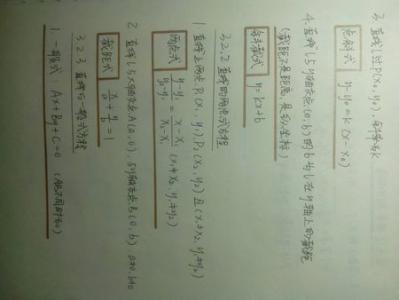 3. 直线l过P(x₀,y₀), 斜率为k
点斜式 y-y₀=k(x-x₀)
4. 直线l与y轴交点(0,b)的b为l在y轴上的截距
(截距不是距离,是纵坐标)
斜截式 y=kx+b
3.2.2 直线的两点式方程
1 直线上两点P₁(x₁,y₁),P₂(x₂,y₂)且(x₁≠x₂,y₁≠y₂)
两点式 y-y₁/y₂-y₁=x-x₁/x₂-x₁ (x₁≠x₂,y₁≠y₂)
2 直线l与x轴交点A(a,0),与y轴交点B(0,b) a≠0,b≠0
截距式 x/a+y/b=1
3.2.3 直线的一般式方程
1. 一般式 Ax+By+C=0 (A,B不同时为0)